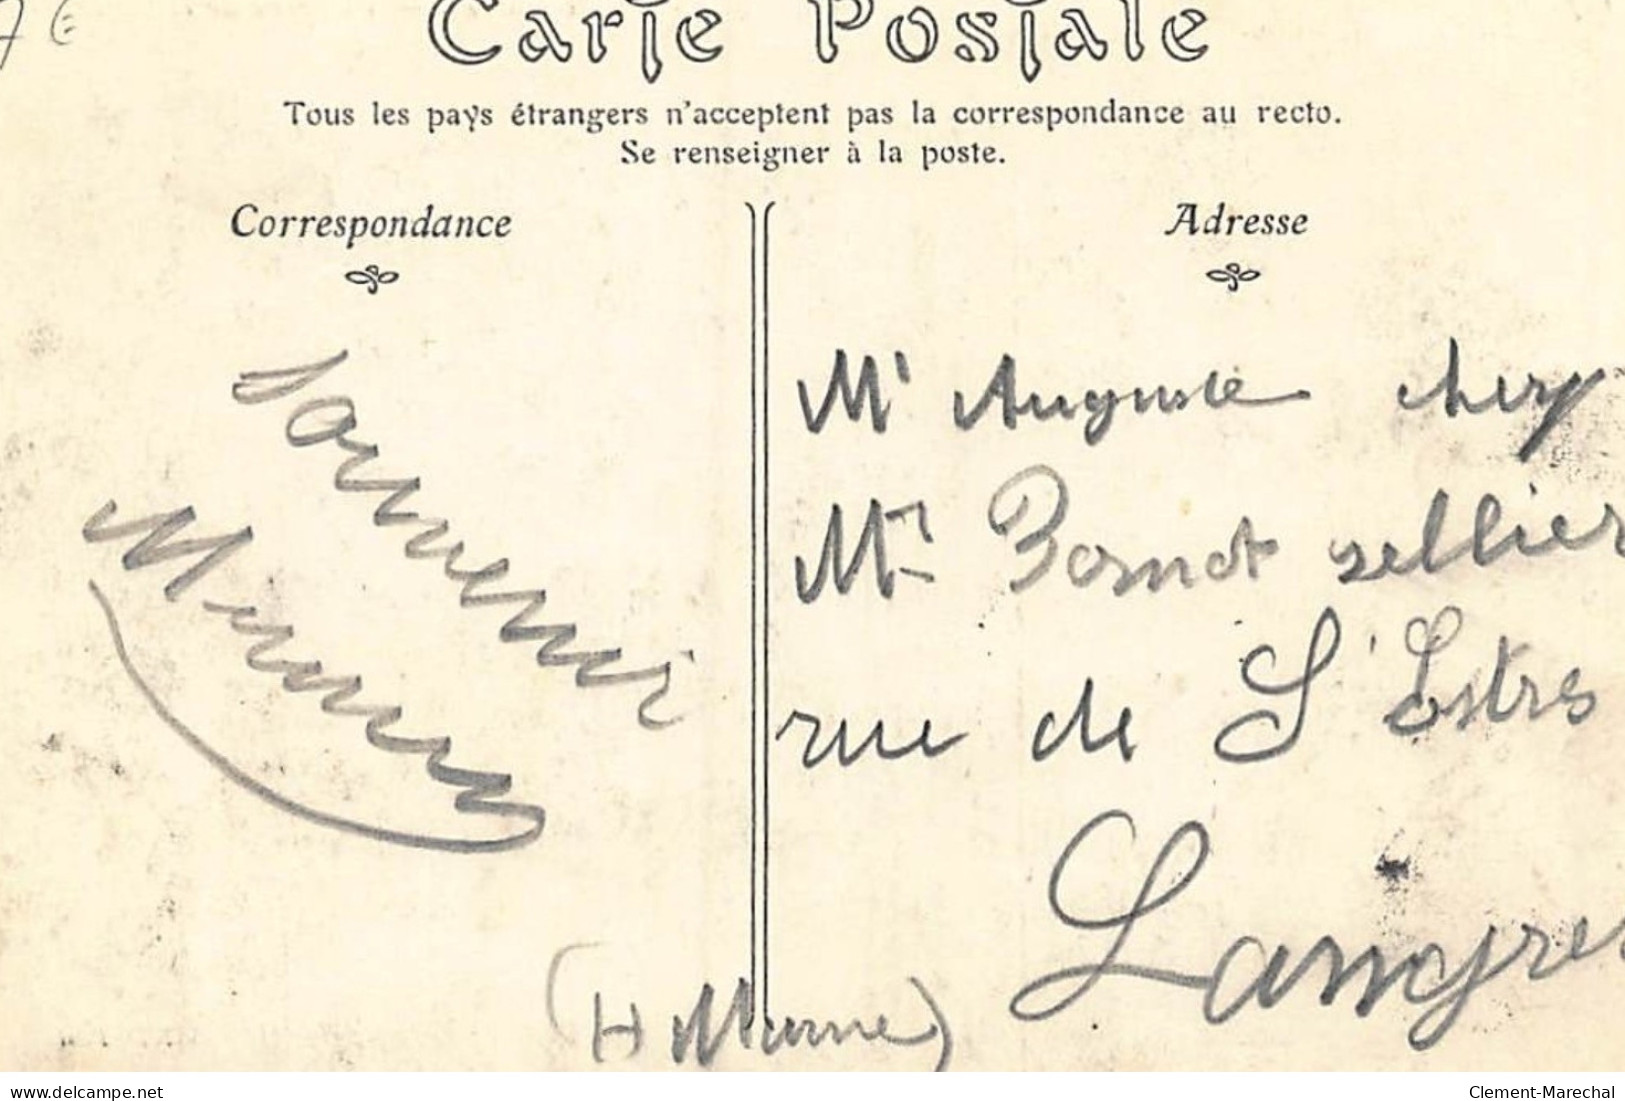 7 €
Carte Postale
Tous les pays étrangers n'acceptent pas la correspondance au recto.
Se renseigner à la poste.
Correspondance
Adresse
souvenir
Mr Auguste chery
Mn Bornot sellier
rue de St
Langres
(H Marne)
delcampe.net
Clement-Marechal